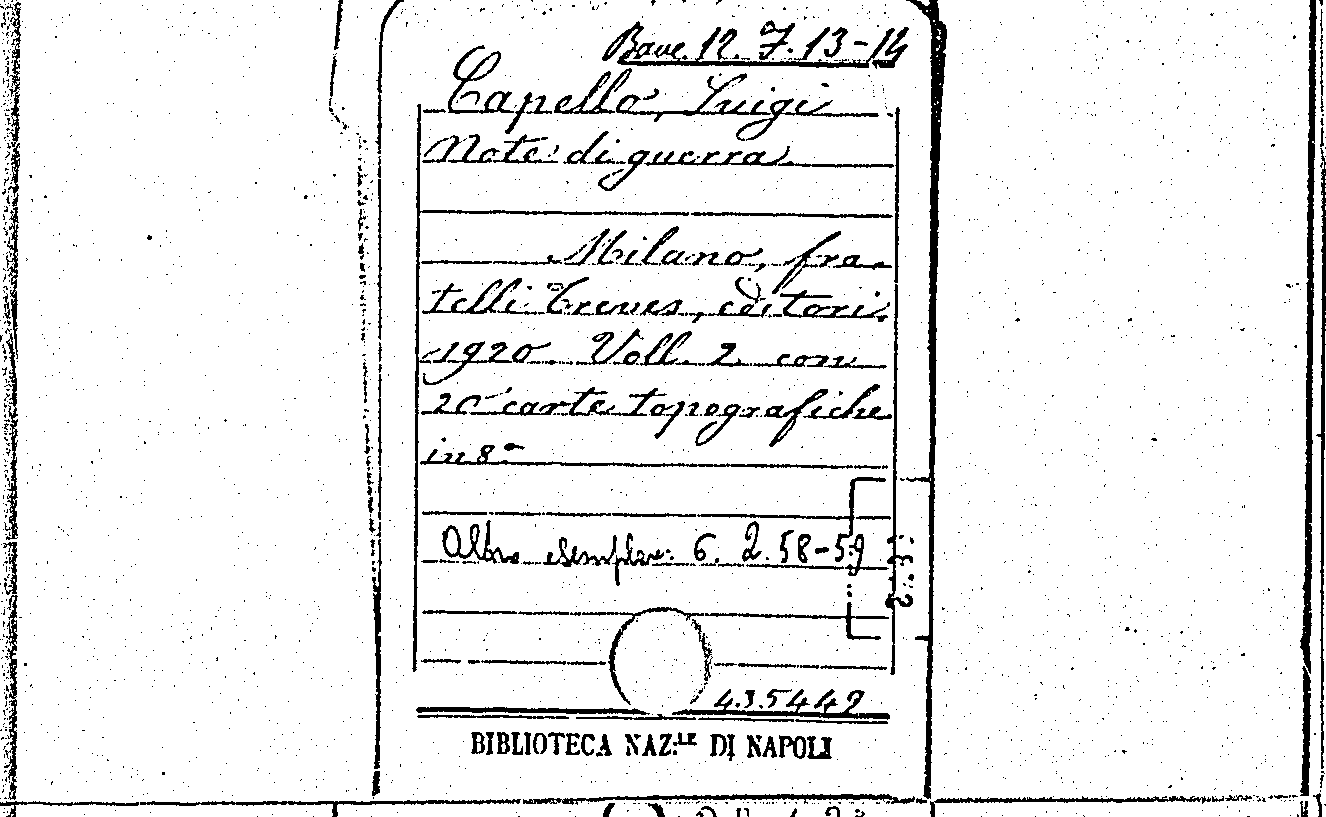 Bave. 12. F. 13-14
Capello, Luigi
Note di guerra.
Milano, fra-
telli Treves, editori.
1920. Voll. 2 con
20 carte topografiche
in 8°
Altro esemplare: 6. 2. 58-59
435442
BIBLIOTECA NAZ:LE DI NAPOLI